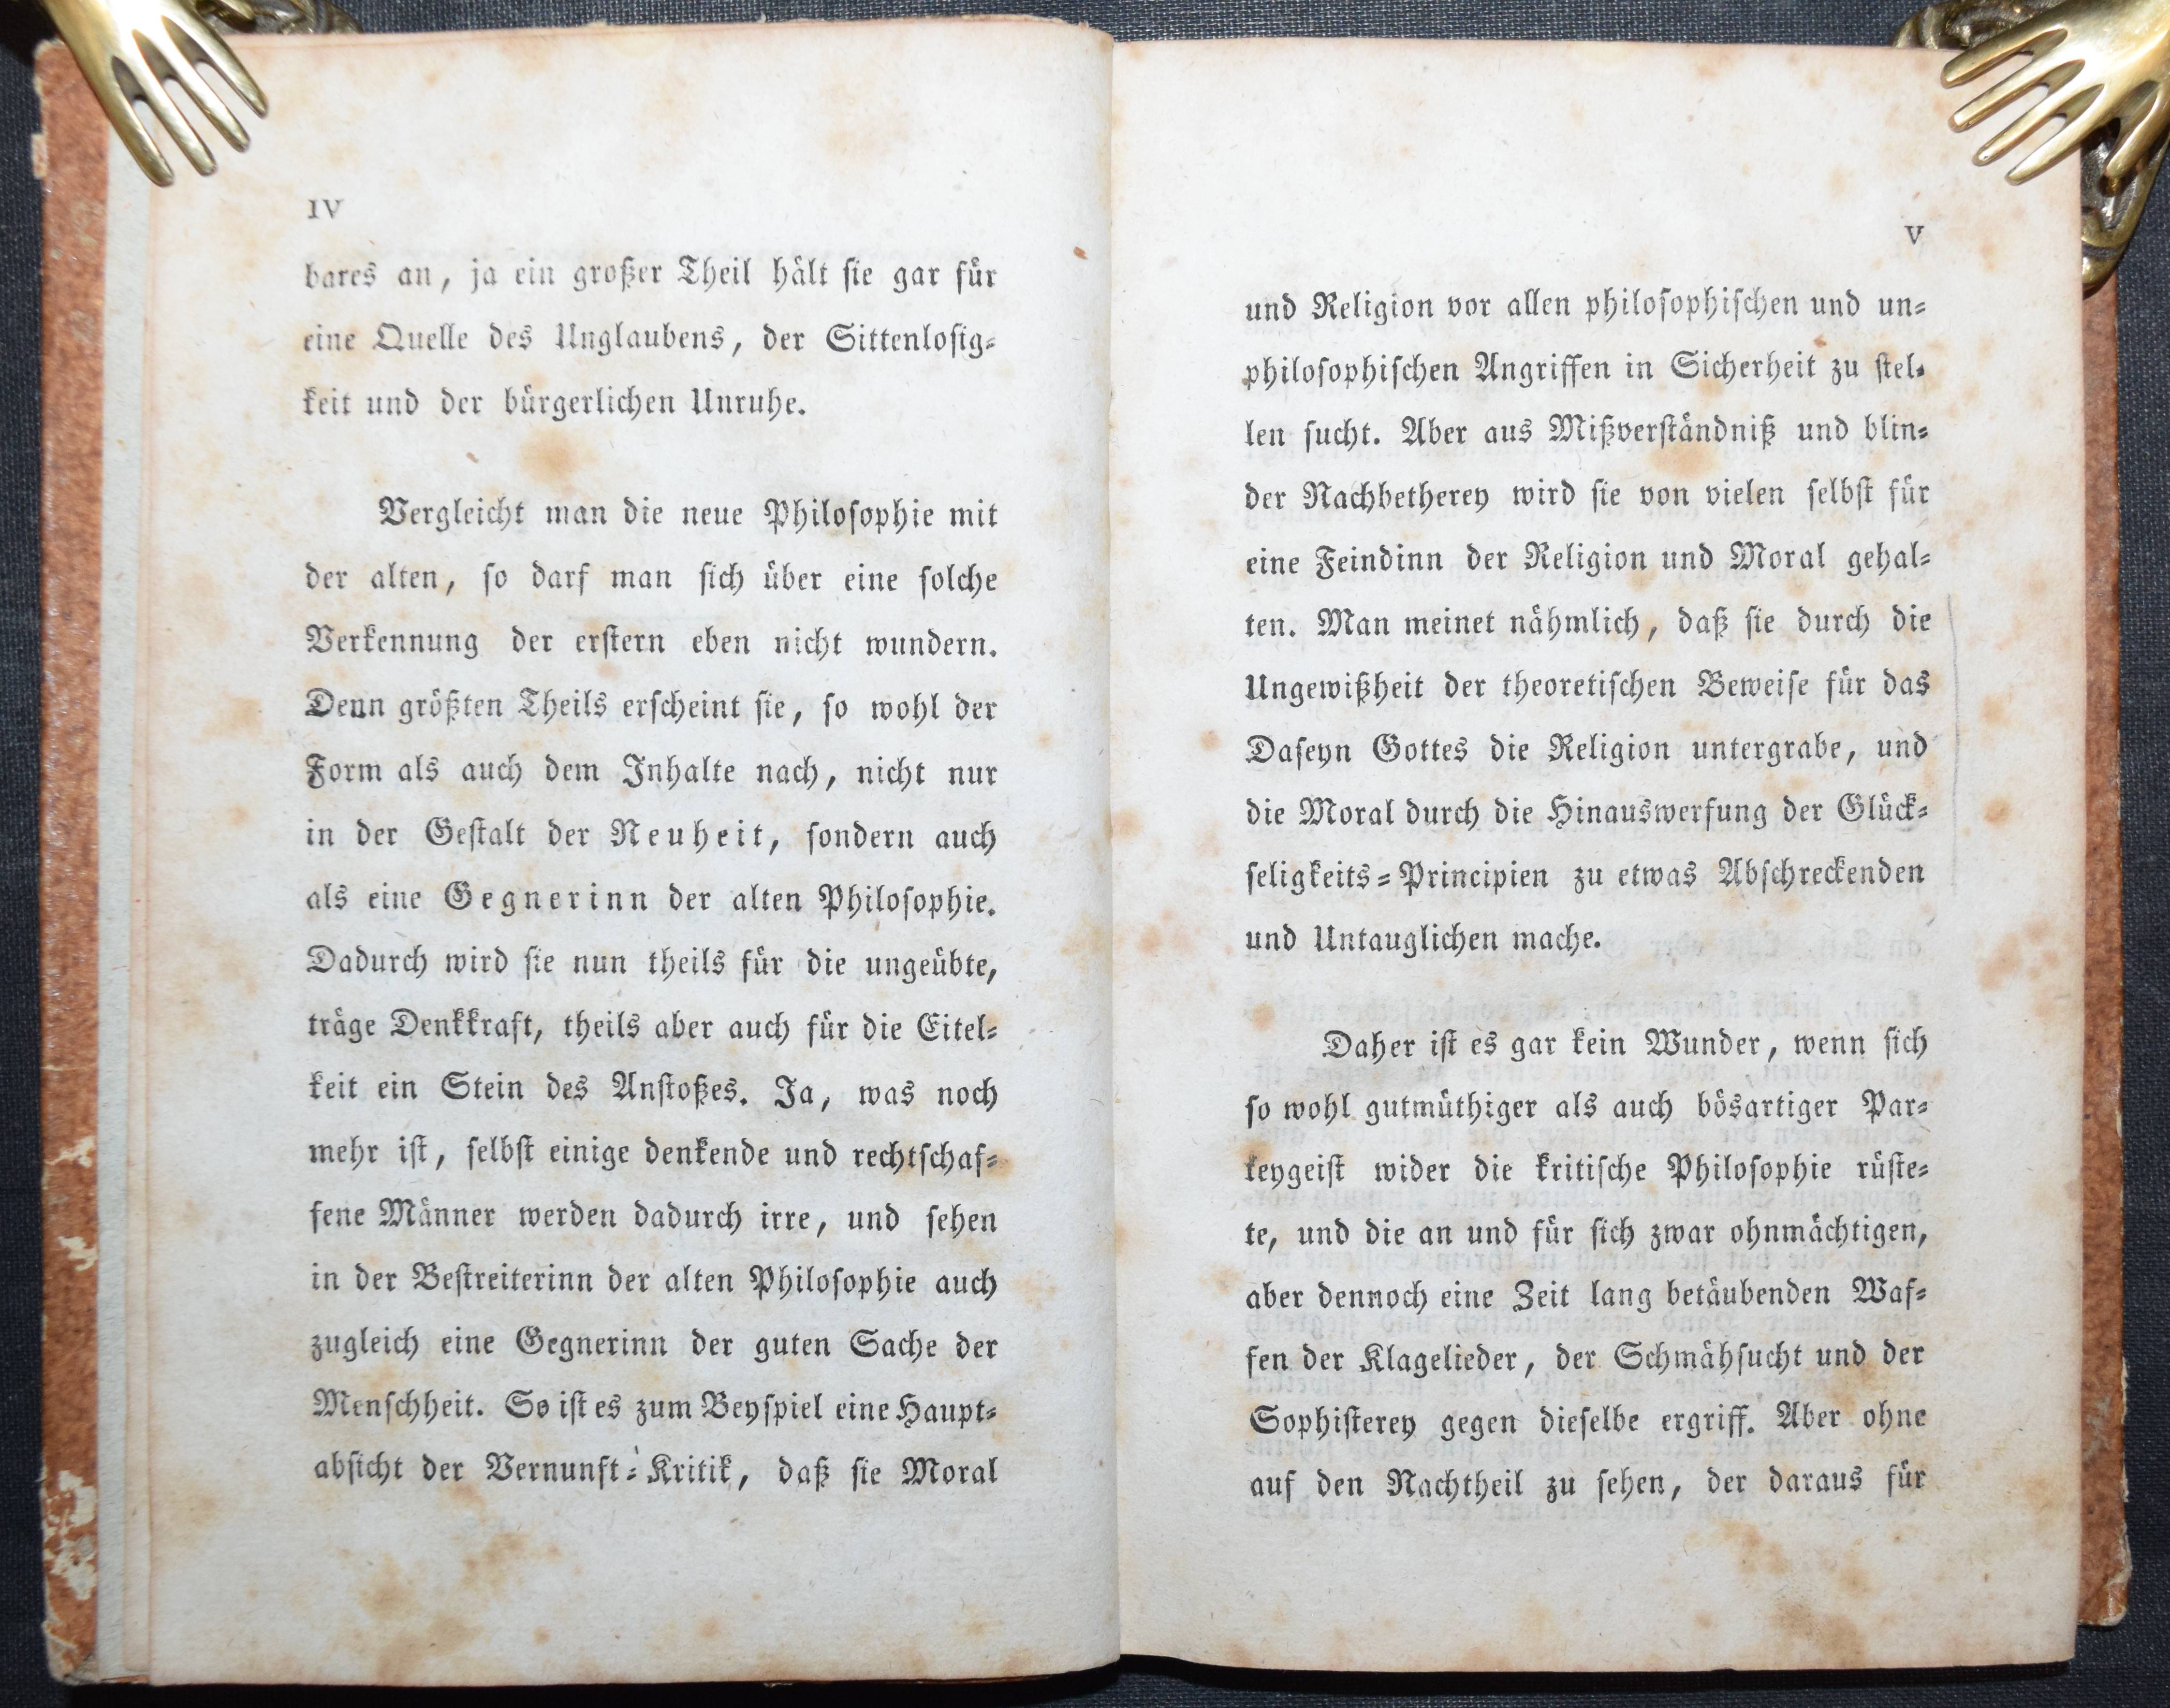 IV
bares an, ja ein großer Theil hält ſie gar für
eine Quelle des Unglaubens, der Sittenloſig-
keit und der bürgerlichen Unruhe.
Vergleicht man die neue Philoſophie mit
der alten, ſo darf man ſich über eine ſolche
Verkennung der erſtern eben nicht wundern.
Denn größten Theils erſcheint ſie, ſo wohl der
Form als auch dem Inhalte nach, nicht nur
in der Geſtalt der Neuheit, ſondern auch
als eine Gegnerinn der alten Philoſophie.
Dadurch wird ſie nun theils für die ungeübte,
träge Denkkraft, theils aber auch für die Eitel-
keit ein Stein des Anſtoßes. Ja, was noch
mehr iſt, ſelbſt einige denkende und rechtſchaf-
fene Männer werden dadurch irre, und ſehen
in der Beſtreiterinn der alten Philoſophie auch
zugleich eine Gegnerinn der guten Sache der
Menſchheit. So iſt es zum Beyſpiel eine Haupt-
abſicht der Vernunft-Kritik, daß ſie Moral
V
und Religion vor allen philoſophiſchen und un-
philoſophiſchen Angriffen in Sicherheit zu ſtel-
len ſucht. Aber aus Mißverſtändniß und blin-
der Nachbetherey wird ſie von vielen ſelbſt für
eine Feindinn der Religion und Moral gehal-
ten. Man meinet nähmlich, daß ſie durch die
Ungewißheit der theoretiſchen Beweiſe für das
Daſeyn Gottes die Religion untergrabe, und
die Moral durch die Hinauswerfung der Glück-
ſeligkeits-Principien zu etwas Abſchreckenden
und Untauglichen mache.
Daher iſt es gar kein Wunder, wenn ſich
ſo wohl gutmüthiger als auch bösartiger Par-
teygeiſt wider die kritiſche Philoſophie rüſte-
te, und die an und für ſich zwar ohnmächtigen,
aber dennoch eine Zeit lang betäubenden Waf-
fen der Klagelieder, der Schmähſucht und der
Sophiſterey gegen dieſelbe ergriff. Aber ohne
auf den Nachtheil zu ſehen, der daraus für